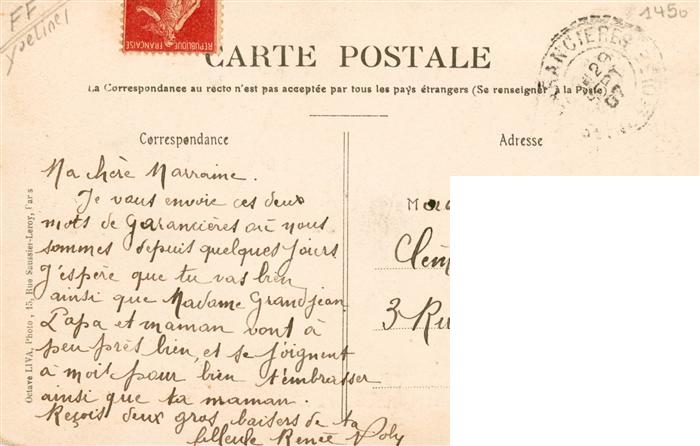 FF
Yvelines
1450
REPUBLIQUE FRANÇAISE
CARTE POSTALE
La Correspondance au recto n'est pas acceptée par tous les pays étrangers (Se renseigner à la Poste)
GARANCIERES
29
SEPT
07
Correspondance
Ma chère Marraine.
Je vous envoie ces deux
mots de Garancières où nous
sommes depuis quelques jours
J'espère que tu vas bien
ainsi que Madame Grandjean
Papa et maman vont à
peu près bien, et se joignent
à moi pour bien t'embrasser
ainsi que ta maman.
Reçois deux gros baisers de ta
filleule Renée
Adresse
Clém
3 Ru
Octave LIVA, Photo, 15, Rue Saussier-Leroy, Paris